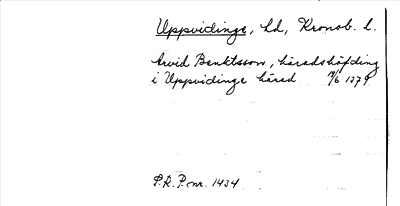 Uppvidinge, hd, Kronob. l.
Arvid Benktsson, häradshöfding
i Uppvidinge härad 11/6 1379
S.R.P. nr. 1434